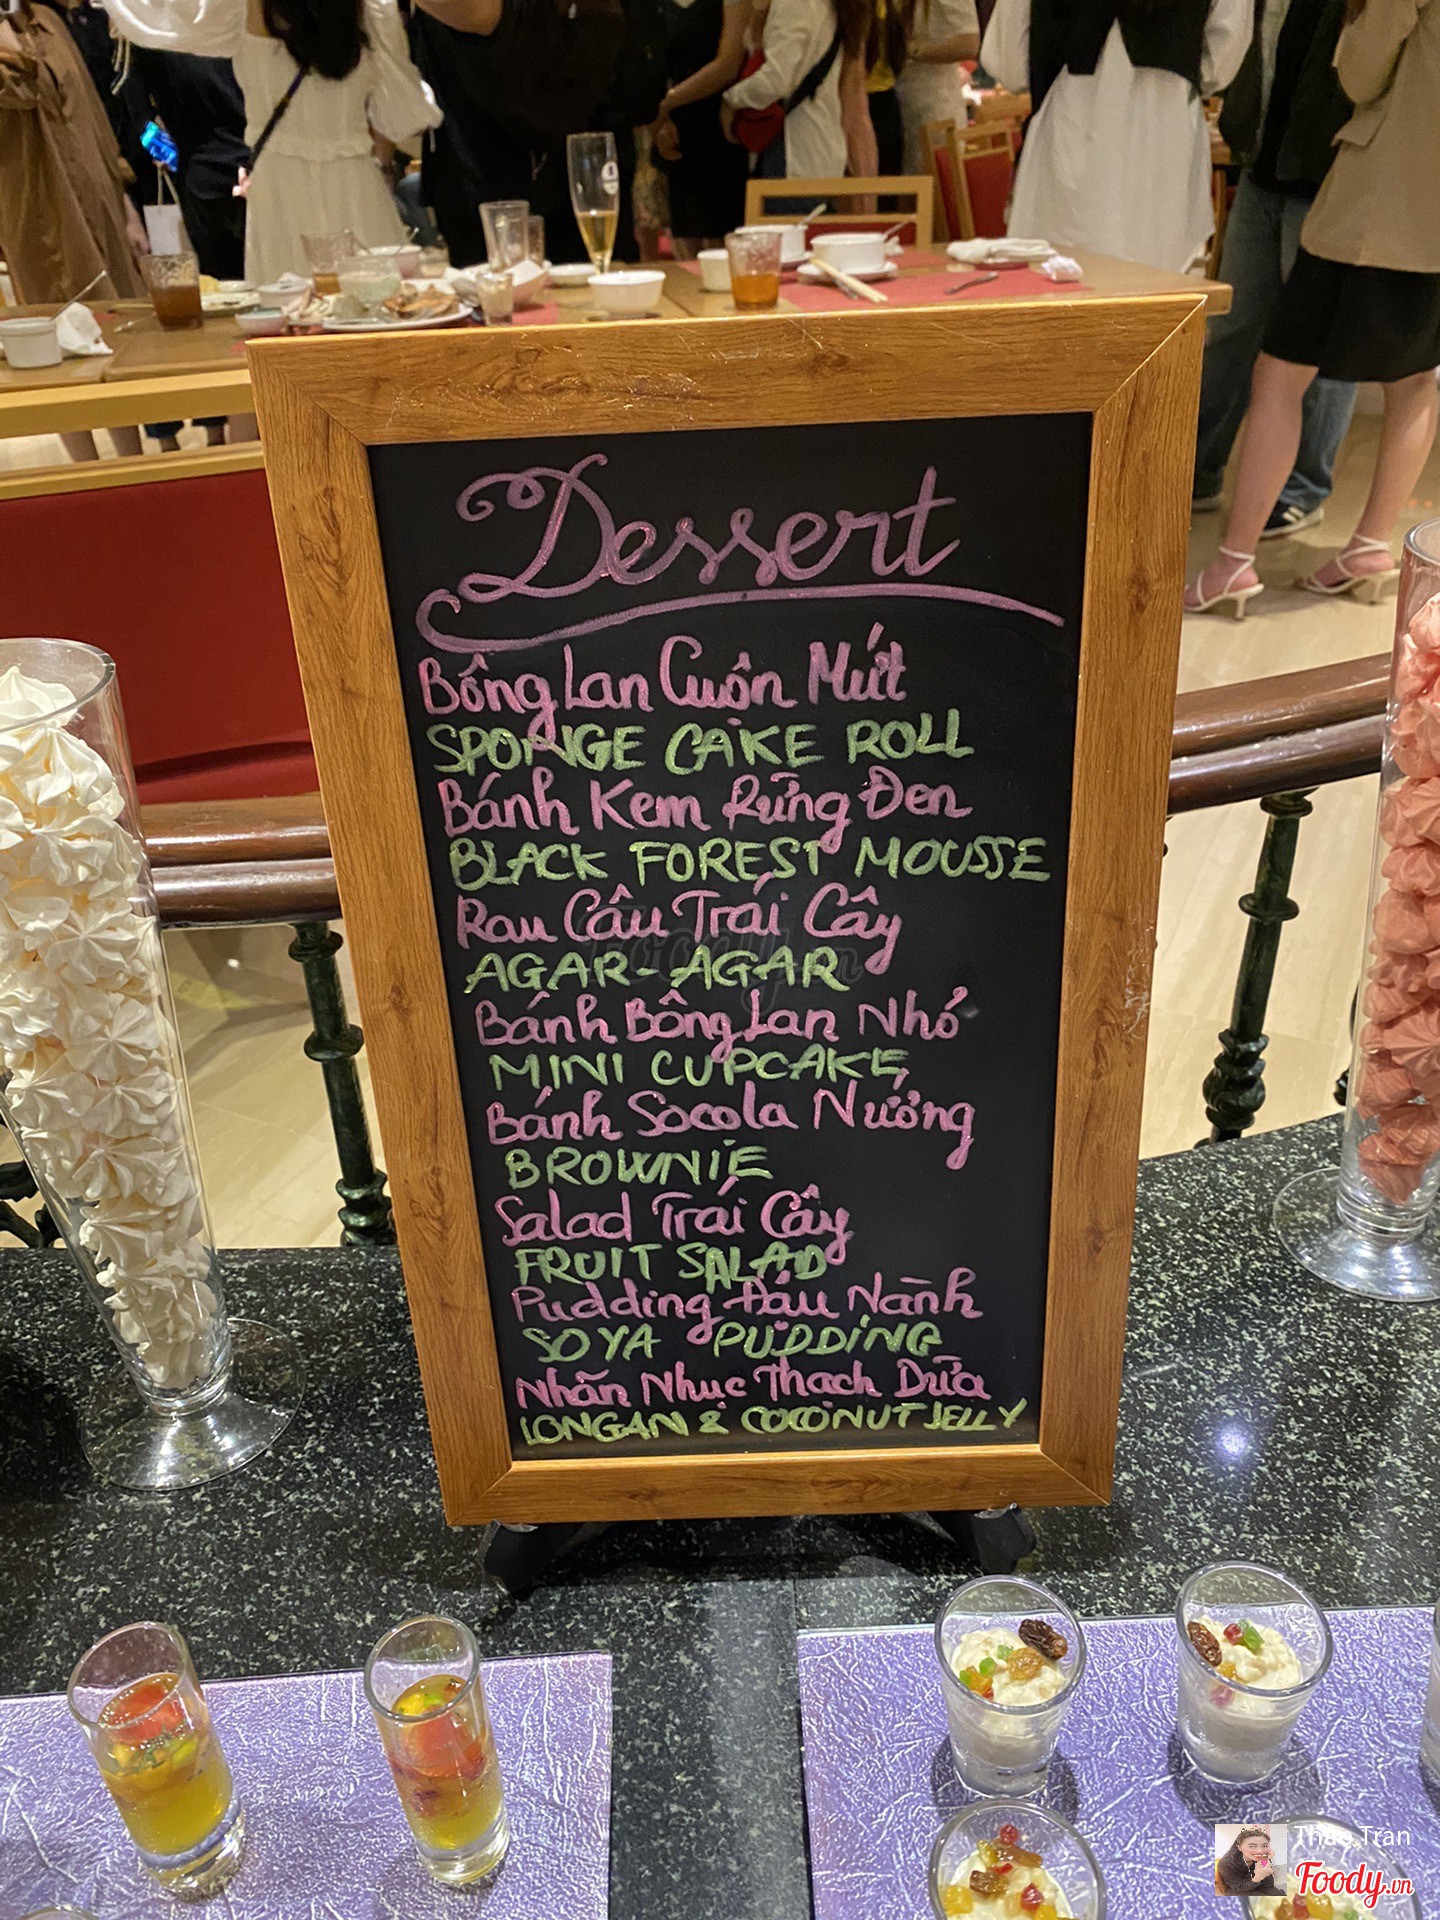 Dessert
Bông Lan Cuộn Mứt
SPONGE CAKE ROLL
Bánh Kem Rừng Đen
BLACK FOREST MOUSSE
Rau Câu Trái Cây
AGAR-AGAR
Bánh Bông Lan Nhỏ
MINI CUPCAKE
Bánh Socola Nướng
BROWNIE
Salad Trái Cây
FRUIT SALAD
Pudding Đậu Nành
SOYA PUDDING
Nhãn Nhục Thạch Dừa
LONGAN & COCONUT JELLY
Foody.vn
Thao Tran
Foody.vn